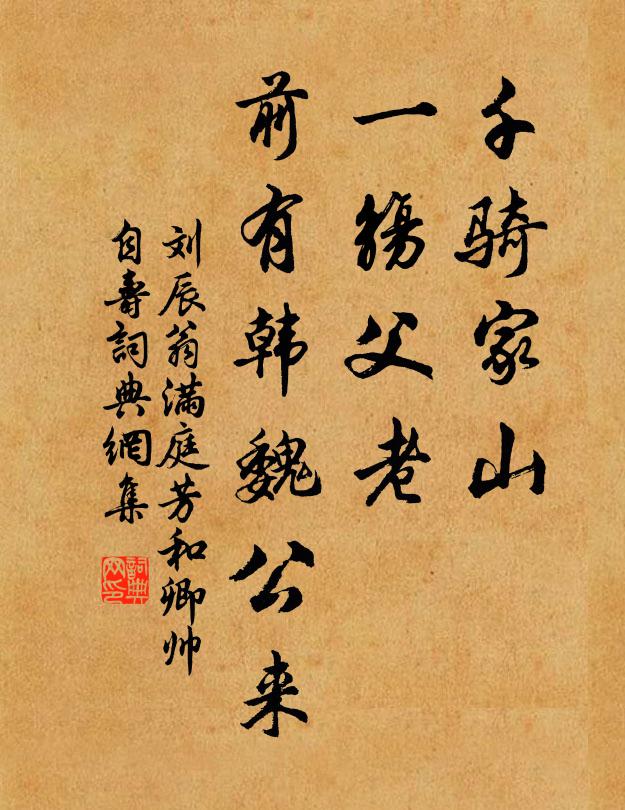 千骑家山
一觞父老
前有韩魏公来
刘辰翁满庭芳和卿帅
自壽詞典網集
詞典
网印